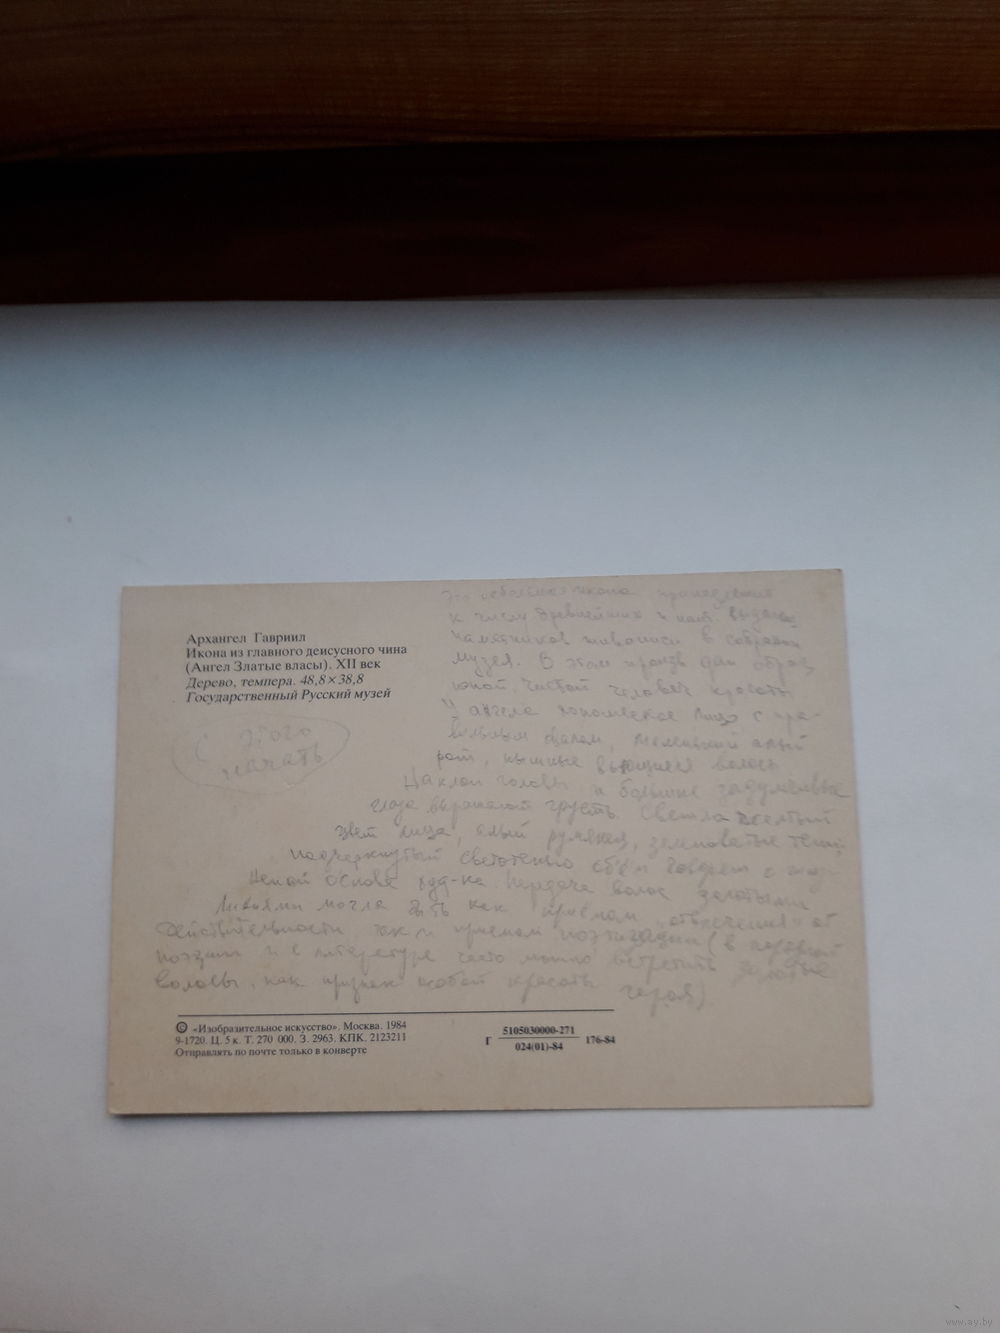 Архангел Гавриил
Икона из главного деисусного чина
(Ангел Златые власы). XII век
Дерево, темпера. 48,8×38,8
Государственный Русский музей
С этого
начать
Это небольшая икона принадлежит
к числу древнейших и наиб.
памятников живописи в собрании
музея. В этом произв дан образ
юной, чистой человеч красоты
У ангела юношеское лицо с
овалом, маленький алый
рот, пышные вьющиеся волосы
Наклон головы и большие задумчивые
глаза выражают грусть.
цвет лица, алый румянец, зеленоватые тени,
подчеркнутый светотенью объём говорят о
основе худ-ка. Передача волос золотыми
линиями могла быть как приёмом „отвлечения" от
действительности, так и приемом поэтизации (в народной
поэзии и в литературе часто можно встретить золотые
волосы, как признак особой красоты героя).
© «Изобразительное искусство». Москва. 1984
9-1720. Ц. 5 к. Т. 270 000. З. 2963. КПК. 2123211
Отправлять по почте только в конверте
Г 5105030000-271 176-84
024(01)-84
www.ay.by